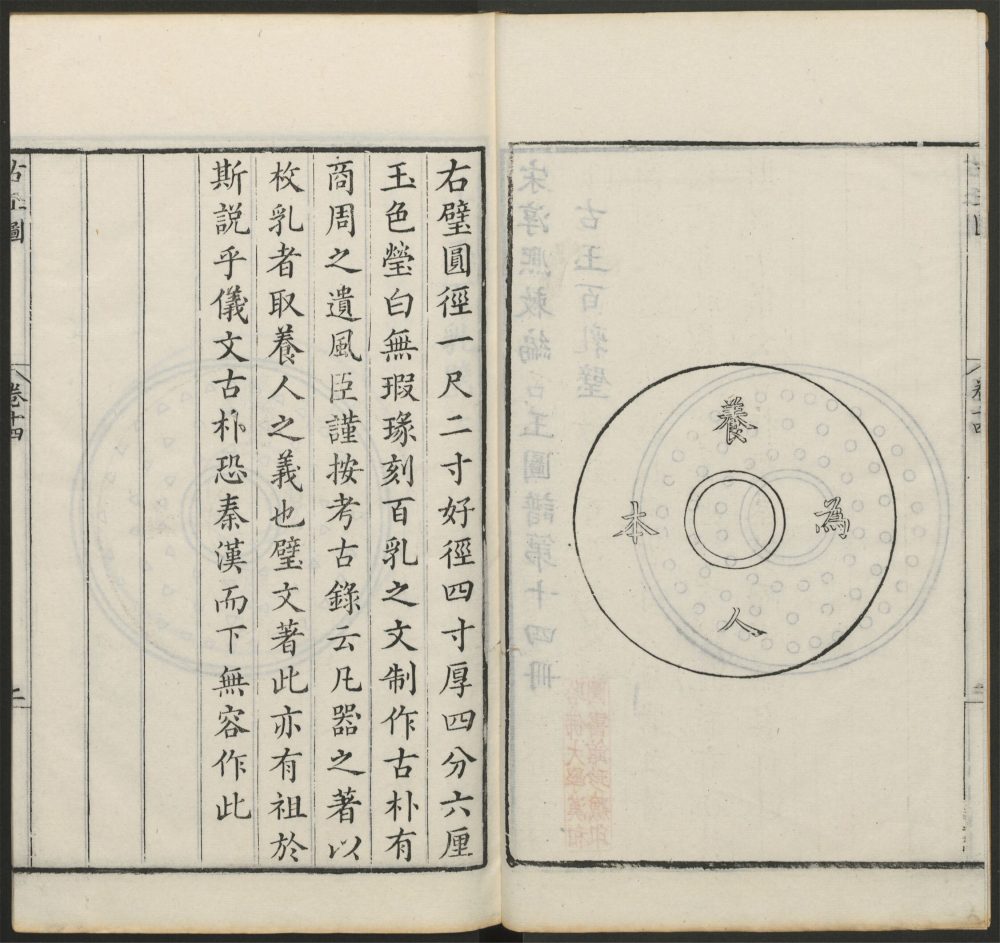 養
為
人
本
右璧圓徑一尺二寸好徑四寸厚四分六厘
玉色瑩白無瑕瑑刻百乳之文制作古朴有
商周之遺風臣謹按考古錄云凡器之著以
枚乳者取養人之義也璧文著此亦有祖於
斯說乎儀文古朴恐秦漢而下無容作此
古玉圖
卷十四
二
宋淳熙敕編古玉圖譜第十四冊
古玉百乳璧